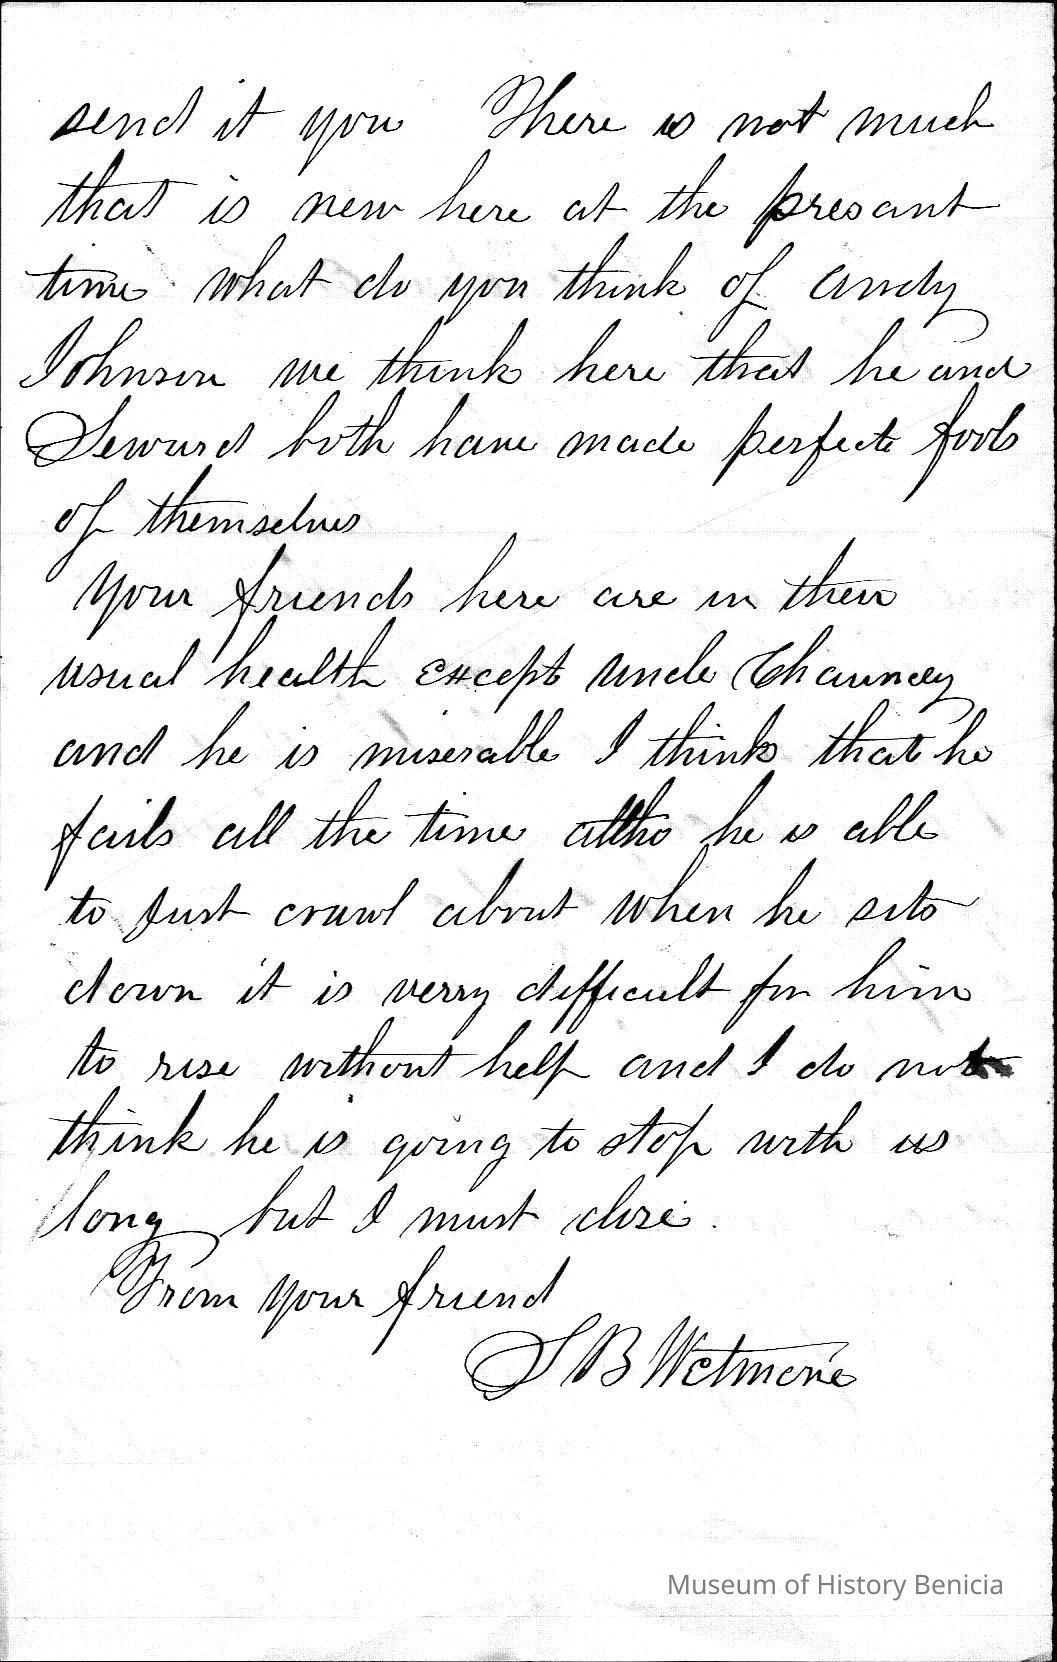 send it you There is not much
that is new here at the presant
time what do you think of Andy
Johnson we think here that he and
Seward both have made perfect fools
of themselves
Your friends here are in their
usual health except uncle Chauncey
and he is miserable I think that he
fails all the time altho he is able
to just crawl about when he sits
down it is verry difficult for him
to rise without help and I do not
think he is going to stop with us
long but I must close.
From your friend
S B Wetmore
Museum of History Benicia